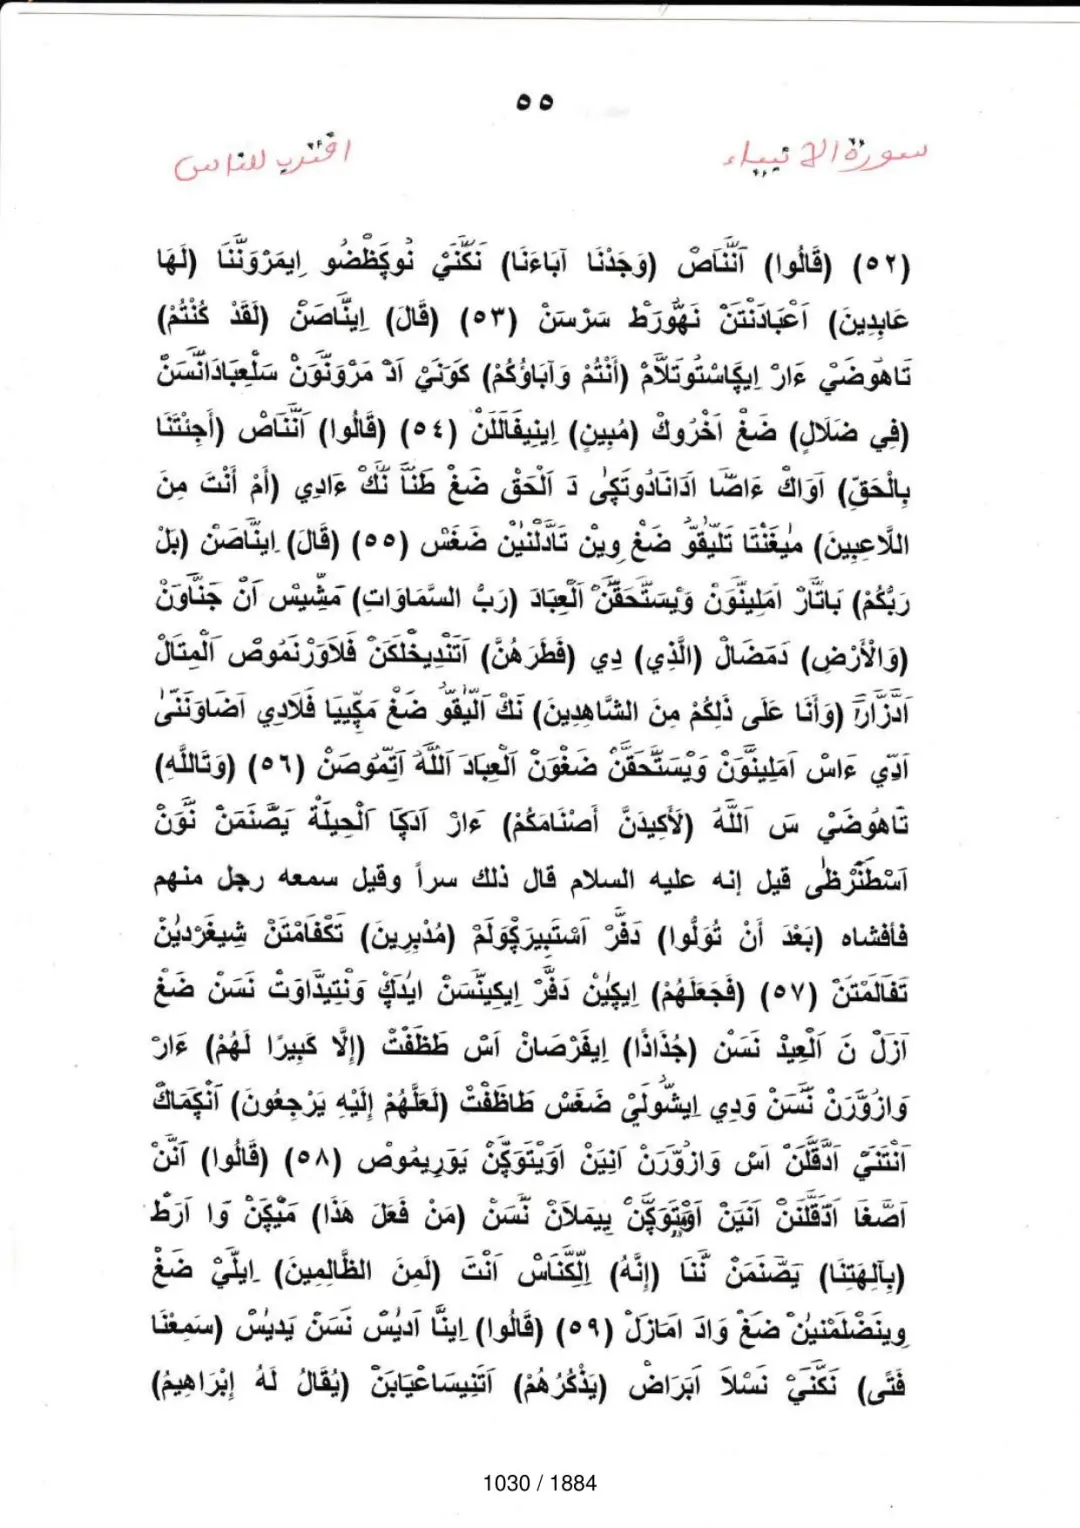 ٥٥
سورة الانبياء
اقترب للناس
(٥٢) (قَالُوا) اَنَّنَاصْ (وَجَدْنَا آبَاءَنَا) نَكَّنَيْ نُوكَظْضُو اِيمَرْوَنَّنَا (لَهَا
عَابِدِينَ) اَعْبَادَنْتَنْ نَهُورَطْ سَرْسَنْ (٥٣) (قَالَ) اِينَّاصَنْ (لَقَدْ كُنْتُمْ)
تَاهُوضَيْ ءَارْ اِيكَاسْتُوتَلَامْ (أَنْتُمْ وَآبَاؤُكُمْ) كَوَنَيْ اَدْ مَرْوَنَّوَنْ سَلْعِبَادَانَّسَنْ
(فِي ضَلَالٍ) ضَغْ اَخْرُوكْ (مُبِينٍ) اِينِيفَالَلَنْ (٥٤) (قَالُوا) اَنَّنَاصْ (أَجِئْتَنَا
بِالْحَقِّ) اَوَاكْ ءَاصَّا اَدَانَادُوتَكِى دَ اَلْحَقْ ضَغْ طَنَّا نَّكْ ءَادِي (أَمْ أَنْتَ مِنَ
اللَّاعِبِينَ) مِيغَنْتَا تَلِّيقَّوْ ضَغْ وِينْ تَادَّلْنِينْ ضَغَسْ (٥٥) (قَالَ) اِينَّاصَنْ (بَلْ
رَبُّكُمْ) بَاتَّارْ اَمَلِينَّوَنْ وَيْسَتَّحَقَّنْ اَلْعِبَادَ (رَبُّ السَّمَاوَاتِ) مَشِّيسْ اَنْ جَنَّاوَنْ
(وَالْأَرْضِ) دَمَضَالْ (الَّذِي) دِي (فَطَرَهُنَّ) اَتَنْدِيخْلَكَنْ فَلَاوَرْنَمُوصْ اَلْمِتَالْ
اَدْزَّارَا (وَأَنَا عَلَى ذَلِكُمْ مِنَ الشَّاهِدِينَ) نَكْ اَلِّيقَّوْ ضَغْ مَكِّيبِيَا فَلَادِي اَضَاوَنَنَّى
اَدِّي ءَاسْ اَمَلِينَّوَنْ وَيْسَتَّحَقَّنْ ضَغْوَنْ اَلْعِبَادَ اَللَّهْ اَتِّمُوصَنْ (٥٦) (وَتَاللَّهِ)
تَاهُوضَيْ سَ اَللَّهْ (لَأَكِيدَنَّ أَصْنَامَكُمْ) ءَارْ اَدَكَا اَلْحِيلَةْ يَصَّنَمَنْ نَّوَنْ
اَسْطَنَّرْظَى قيل إنه عليه السلام قال ذلك سراً وقيل سمعه رجل منهم
فأفشاه (بَعْدَ أَنْ تُوَلُّوا) دَفَّرْ اَسْتَبِيرَكْوَلَمْ (مُدْبِرِينَ) تَكْفَامْتَنْ شِيغَرْدِيْنْ
تَفَالَمْتَنْ (٥٧) (فَجَعَلَهُمْ) اِيكِيْنْ دَفَّرْ اِيكِينَسَنْ اَيْدَكْ وَنْتِيدَّاوَتْ نَسَنْ ضَغْ
اَزَلْ نَ اَلْعِيدْ نَسَن (جُذَاذًا) اِيفَرْصَانْ اَسْ طَظَفْتْ (إِلَّا كَبِيرًا لَهُمْ) ءَارْ
وَازْوَّرَنْ نَّسَنْ وَدِي اِيشُّولَيْ ضَغَسْ طَاظَفْتْ (لَعَلَّهُمْ إِلَيْهِ يَرْجِعُونَ) اَنْكَمَاكْ
اَنْتَنَيْ اَدَّقَّلَنْ اَسْ وَازْوَّرَنْ اَنِيَنْ اَوَيْتَوَكَّنْ يَوَرِيمُوصْ (٥٨) (قَالُوا) اَنَّنْ
اَصَّغَا اَدَّقَّلَنَنْ اَنَيَنْ اَوَيْتَوَكَّنْ يِيمَلَانْ نَّسَنْ (مَنْ فَعَلَ هَذَا) مَيْكَنْ وَا اَرَطْ
(بِآلِهَتِنَا) يَصَّنَمَنْ نَّنَا (إِنَّهُ) اِلَّكَّنَاسْ اَنْتَ (لَمِنَ الظَّالِمِينَ) اِيلَّيْ ضَغْ
وِينَضْلَمْنِينْ ضَغْ وَادَ اَمَازَلْ (٥٩) (قَالُوا) اِينَّا اَدِيْسْ نَسَنْ يَدِيْسْ (سَمِعْنَا
فَتًى) نَكَّنَيْ نَسْلَا اَبَرَاضْ (يَذْكُرُهُمْ) اَتَنِيسَاعْيَابَنْ (يُقَالُ لَهُ إِبْرَاهِيمُ)
1030 / 1884